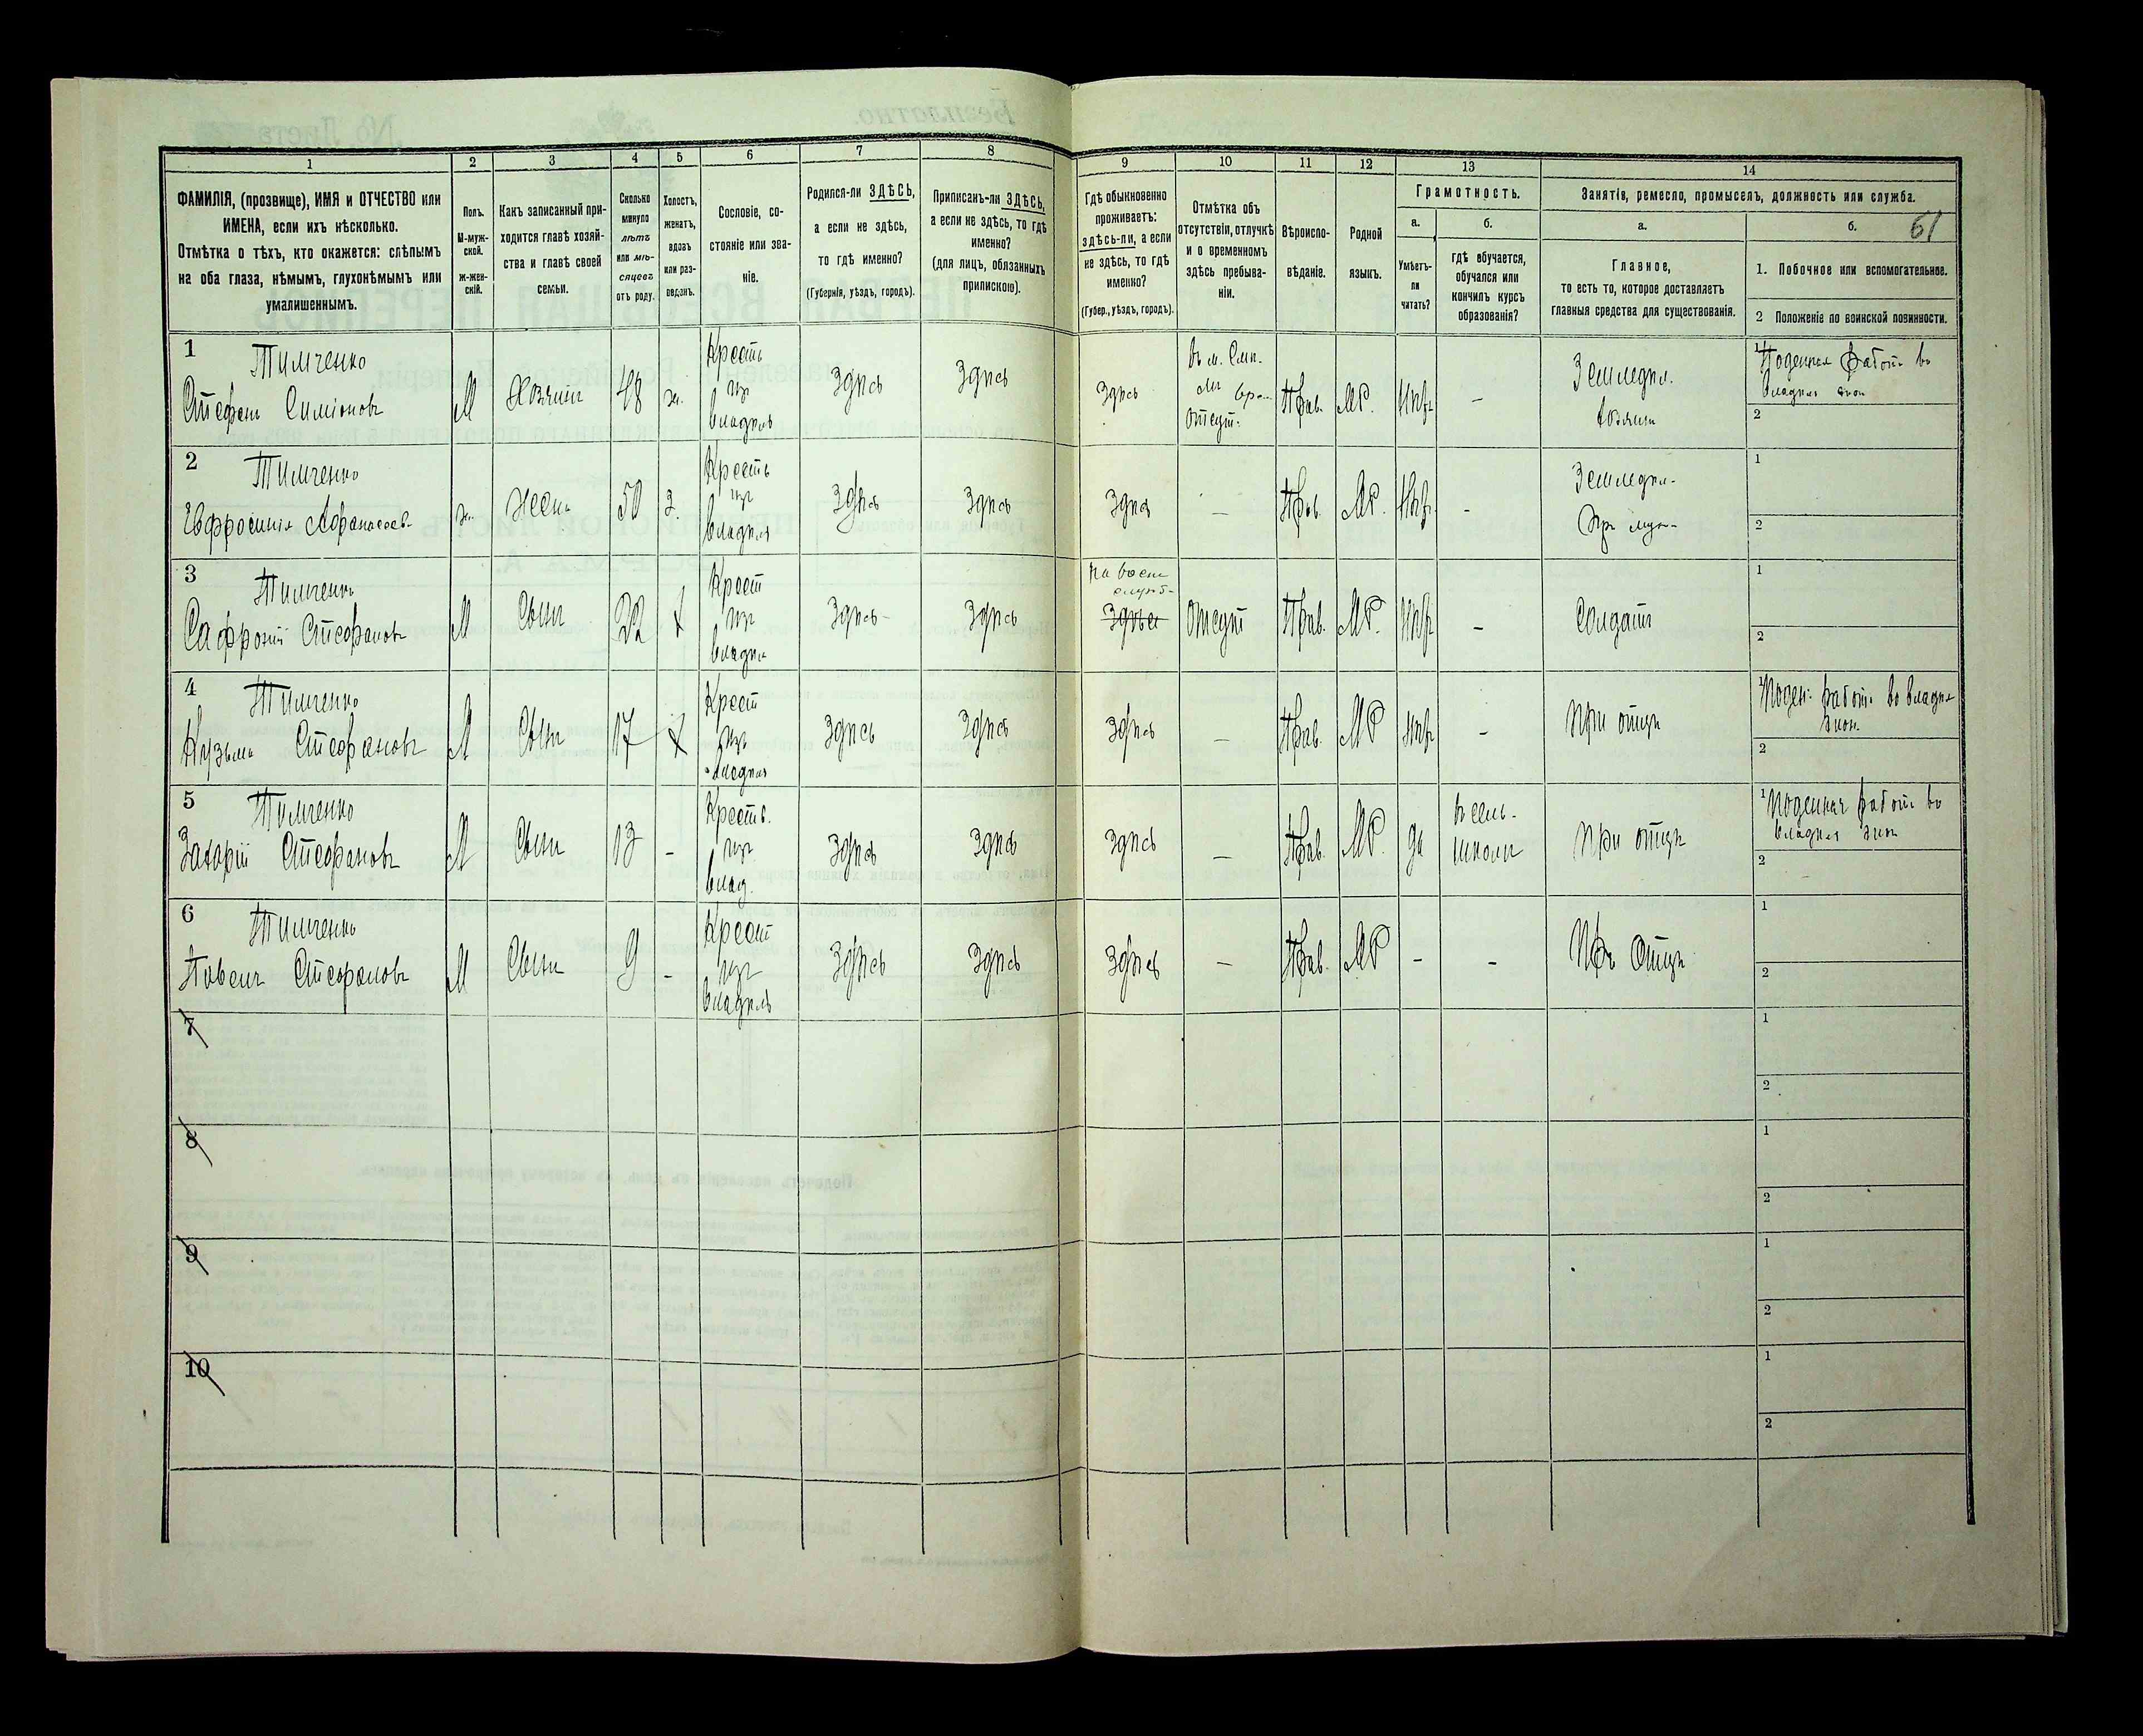 1
2
3
4
5
6
7
8
9
10
11
12
13
14
ФАМИЛІЯ, (прозвище), ИМЯ и ОТЧЕСТВО или
ИМЕНА, если ихъ нѣсколько.
Отмѣтка о тѣхъ, кто окажется: слѣпымъ
на оба глаза, нѣмымъ, глухонѣмымъ или
умалишеннымъ.
Полъ.
М-муж-
ской.
ж-жен-
скій.
Какъ записанный при-
ходится главѣ хозяй-
ства и главѣ своей
семьи.
Сколько
минуло
лѣтъ
или мѣ-
сяцевъ
отъ роду.
Холостъ,
женатъ,
вдовъ
или раз-
веденъ.
Сословіе, со-
стояніе или зва-
ніе.
Родился-ли ЗДѢСЬ,
а если не здѣсь,
то гдѣ именно?
(Губернія, уѣздъ, городъ).
Приписанъ-ли ЗДѢСЬ,
а если не здѣсь, то гдѣ
именно?
(для лицъ, обязанныхъ
припискою).
Гдѣ обыкновенно
проживаетъ:
здѣсь-ли, а если
не здѣсь, то гдѣ
именно?
(Губер., уѣздъ, городъ).
Отмѣтка объ
отсутствіи, отлучкѣ
и о временномъ
здѣсь пребыва-
ніи.
Вѣроиспо-
вѣданіе.
Родной
языкъ.
Грамотность.
а.
Умѣетъ-
ли
читать?
б.
гдѣ обучается,
обучался или
кончилъ курсъ
образованія?
Занятіе, ремесло, промыселъ, должность или служба.
а.
Главное,
то есть то, которое доставляетъ
главныя средства для существованія.
б.
61
1. Побочное или вспомогательное.
2 Положеніе по воинской повинности.
1
Тимченко
Стефанъ Симіоновъ
М
Хозяинъ
48
ж.
Крестъ
изъ
владѣль
Здѣсь
Здѣсь
Здѣсь
отсут.
Прав.
МР.
Нѣт
-
Земледѣл.
хозяинъ
1 Поденная работа во
владѣл экон
2
2
Тимченко
Евфросинія Афанасьев
ж.
Жена
50
з.
Кресть
изъ
владѣль
Здѣсь
Здѣсь
Здѣсь
-
Прав.
МР.
Нѣт.
-
Земледѣл.
При муж-
1
2
3
Тимченко
Сафроній Стефановъ
М
Сынъ
22
х
Крест
изъ
владѣл
Здѣсь-
Здѣсь
На воен
служб-
Здѣсь
Отсут
Прав.
МР.
Нѣт
-
Солдатъ
1
2
4
Тимченко
Кузьма Стефановъ
М
Сынъ
17
х
Крест
изъ
владѣль
Здѣсь
Здѣсь
Здѣсь
-
Прав.
МР
Нѣт
-
При отцѣ
1 Поден. работа во владѣл
экон.
2
5
Тимченко
Захарій Стефановъ
М
Сынъ
13
-
Крестъ.
изъ
влад.
Здѣсь
Здѣсь
Здѣсь
-
Прав.
МР.
да
въ сель.
школѣ
При отцѣ
1 Поденная работа во
владѣл экон
2
6
Тимченко
Павелъ Стефановъ
М
Сынъ
9
-
Крест
изъ
владѣль
Здѣсь
Здѣсь
Здѣсь
-
Прав.
МР
-
-
При Отцѣ
1
2
7
1
2
8
1
2
9
1
2
10
1
2